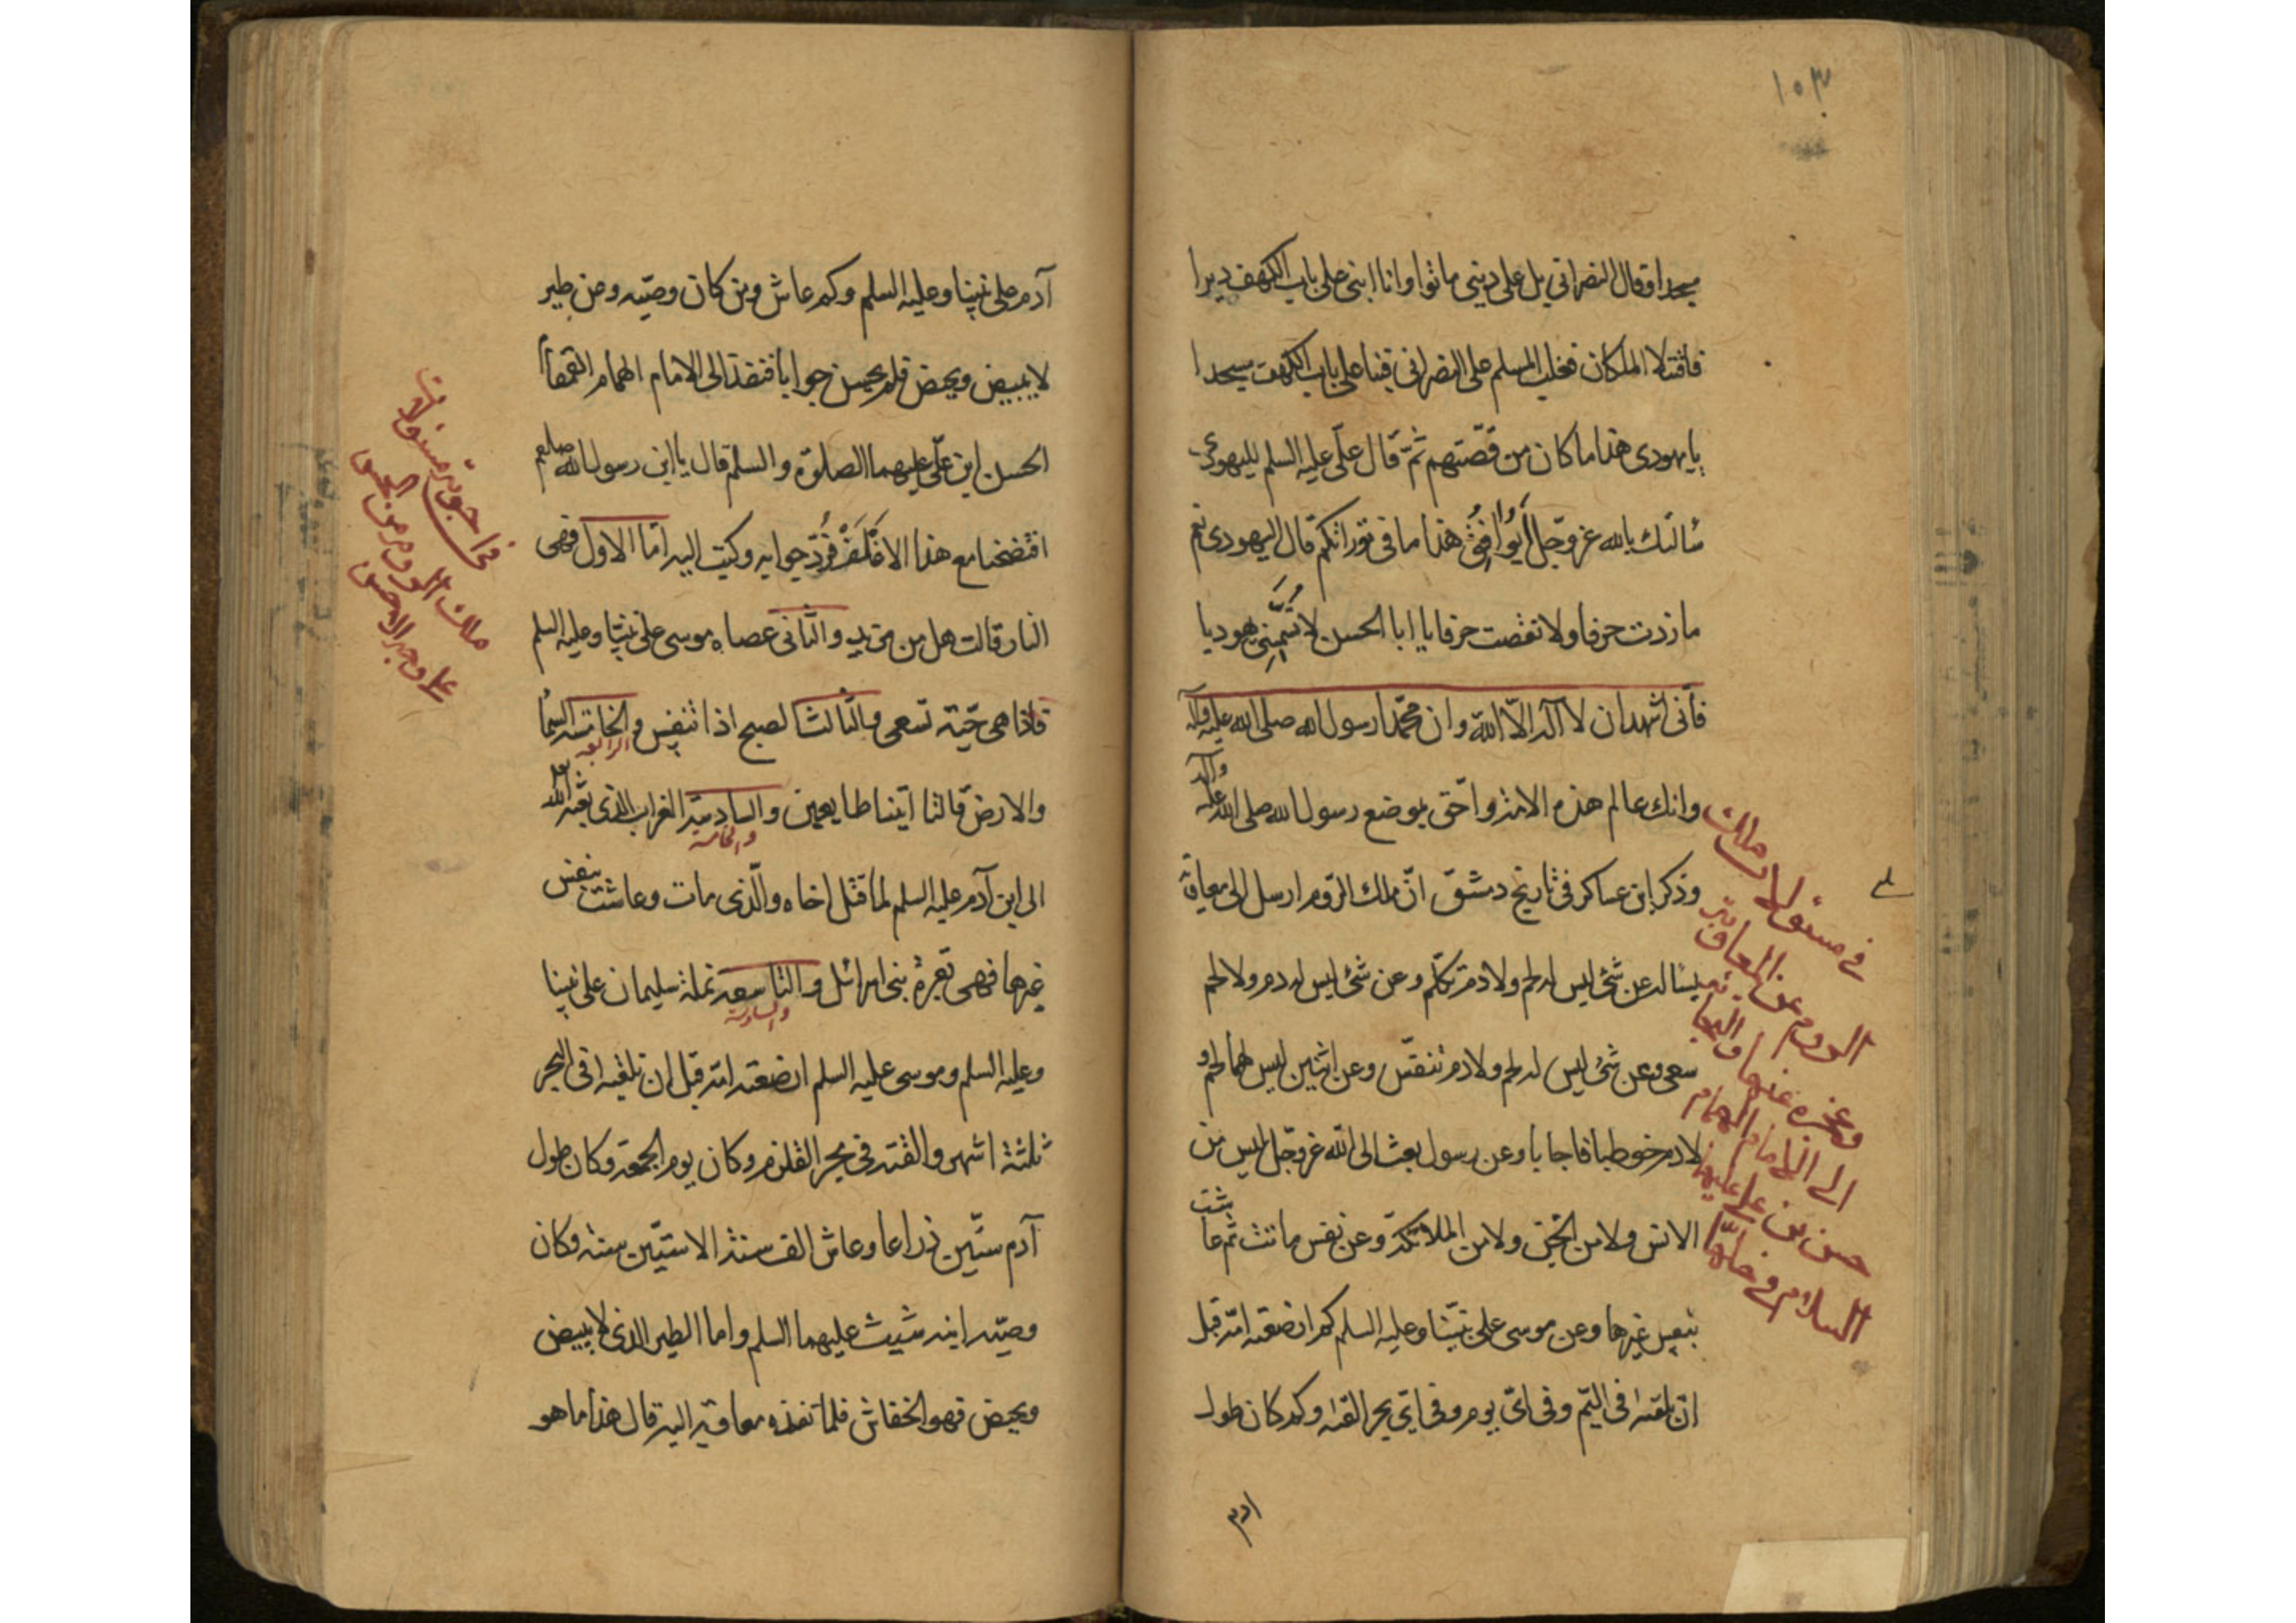 ١٥٣
مسجدا وقال النصراني بل على ديني ماتوا وانا ابني على باب الكهف ديرا
فاقتتلا الملكان فغلب المسلم على النصراني فبنا على باب الكهف مسجدا
يا يهودى هذا ما كان من قصّتهم ثمّ قال علّى عليه السلم لليهودى
سئالتك بالله عزّ وجّل أيُوافِقُ هذا ما فى توراتكم قال اليهودى نعم
ما زدت حرفا ولا نقصت حرفا يا ابا الحسن لا تُسَمِّيَنِى يهوديا
فأنى اشهد ان لا اله الّا الله وان محمّدا رسول الله صلى الله عليه وآله
وانك عالم هذه الامة واحّق بموضع رسول الله صلى الله عليه وآله
وذكر ابن عساكر فى تاريخ دمشق انّ ملك الرّوم ارسل الى معاوية
يسئاله عن شئ ليس له لحم ولا دم تكلّم وعن شئ ليس له دم ولا لحم
سعى وعن شئ ليس له لحم ولا دم تنفّس وعن اثنين ليس لهما لحم و
لا دم خوطبا فاجابا وعن رسول بعث الى الله عزّ وجّل ليس من
الانس ولا من الجّن ولا من الملائكة وعن نفس ماتت ثم عاشت
بنفس غيرها وعن موسى على نبيّنا وعليه السلم كم ارضعته امّه قبل
ان تلقته فى اليّم وفى اىّ يوم وفى اىّ بحر القته وكم كان طول
ادم
فى مسئولات ملك
الروم عن المعاوية
وعجزه عنها والتجا
الى الامام الهمام
حسن بن على عليهما
السلام فى حلّها
آدم على نبينا وعليه السلم وكم عاش ومن كان وصيّه وعن طير
لا يبيض ويحيض فلم يحسن جوابا فنفذ الى الامام الهمام القمقام
الحسن ابن علّى عليهما الصلوة والسلم قال يا ابن رسول الله صلعم
افتضحنا مع هذا الاقْلَف فُردّ جوابه وكتب اليه امّا الاول فهى
النار قالت هل من مزيد والثّانى عصاه موسى على نبيّنا وعليه السلم
فاذا هى حيّة تسعى والثّالث الصبح اذا تنفس والخامسة السماء
الرابعة
والارض قالتا اتينا طايعين والسادسة الغراب الذى بعثه الله
والخامسة
الى ابن آدم عليه السلم لما قتل اخاه والّذى مات وعاشت بنفس
غيرها فهى بقرة بنى اسرائل والتّاسعه نملة سليمان على نبينا
والسادسة
وعليه السلم وموسى عليه السلم ارضعته امّه قبل ان تلقيه فى البحر
ثلثة اشهر والقته فى بحر القلزم وكان يوم الجمعة وكان طول
آدم ستّين ذراعا وعاش الف سنة الا ستّين سنة وكان
وصيّه ابنه شيث عليهما السلم واما الطير الذى لا يبيض
ويحيض فهو الخفاش فلما نفذه معاوية اليه قال هذا ما هو
فى اجوبة مسئولات
ملك الروم من الحسن
على وجه الاحسن